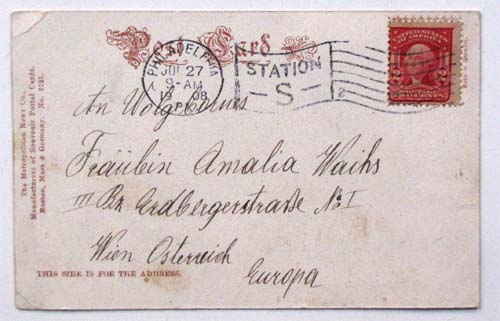 Post Card
PHILADELPHIA
JUL 27
9-AM
1908
PA
STATION
S
2
UNITED STATES
OF AMERICA
2 2
POSTAGE
TWO CENTS
The Metropolitan News Co.,
Manufacturers of Souvenir Postal Cards.
Boston, Mass & Germany. No.
An
Fräulein Amalia Waihs
III Bz. Erdbergerstraße No I
Wien Österreich
Europa
THIS SIDE IS FOR THE ADDRESS.